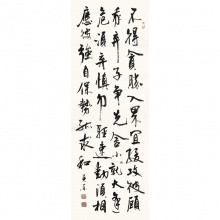 不得貪勝入界宜緩攻彼顧
我棄子爭先舍小就大逢
危須棄慎勿輕速動須相
應彼強自保勢孤取和